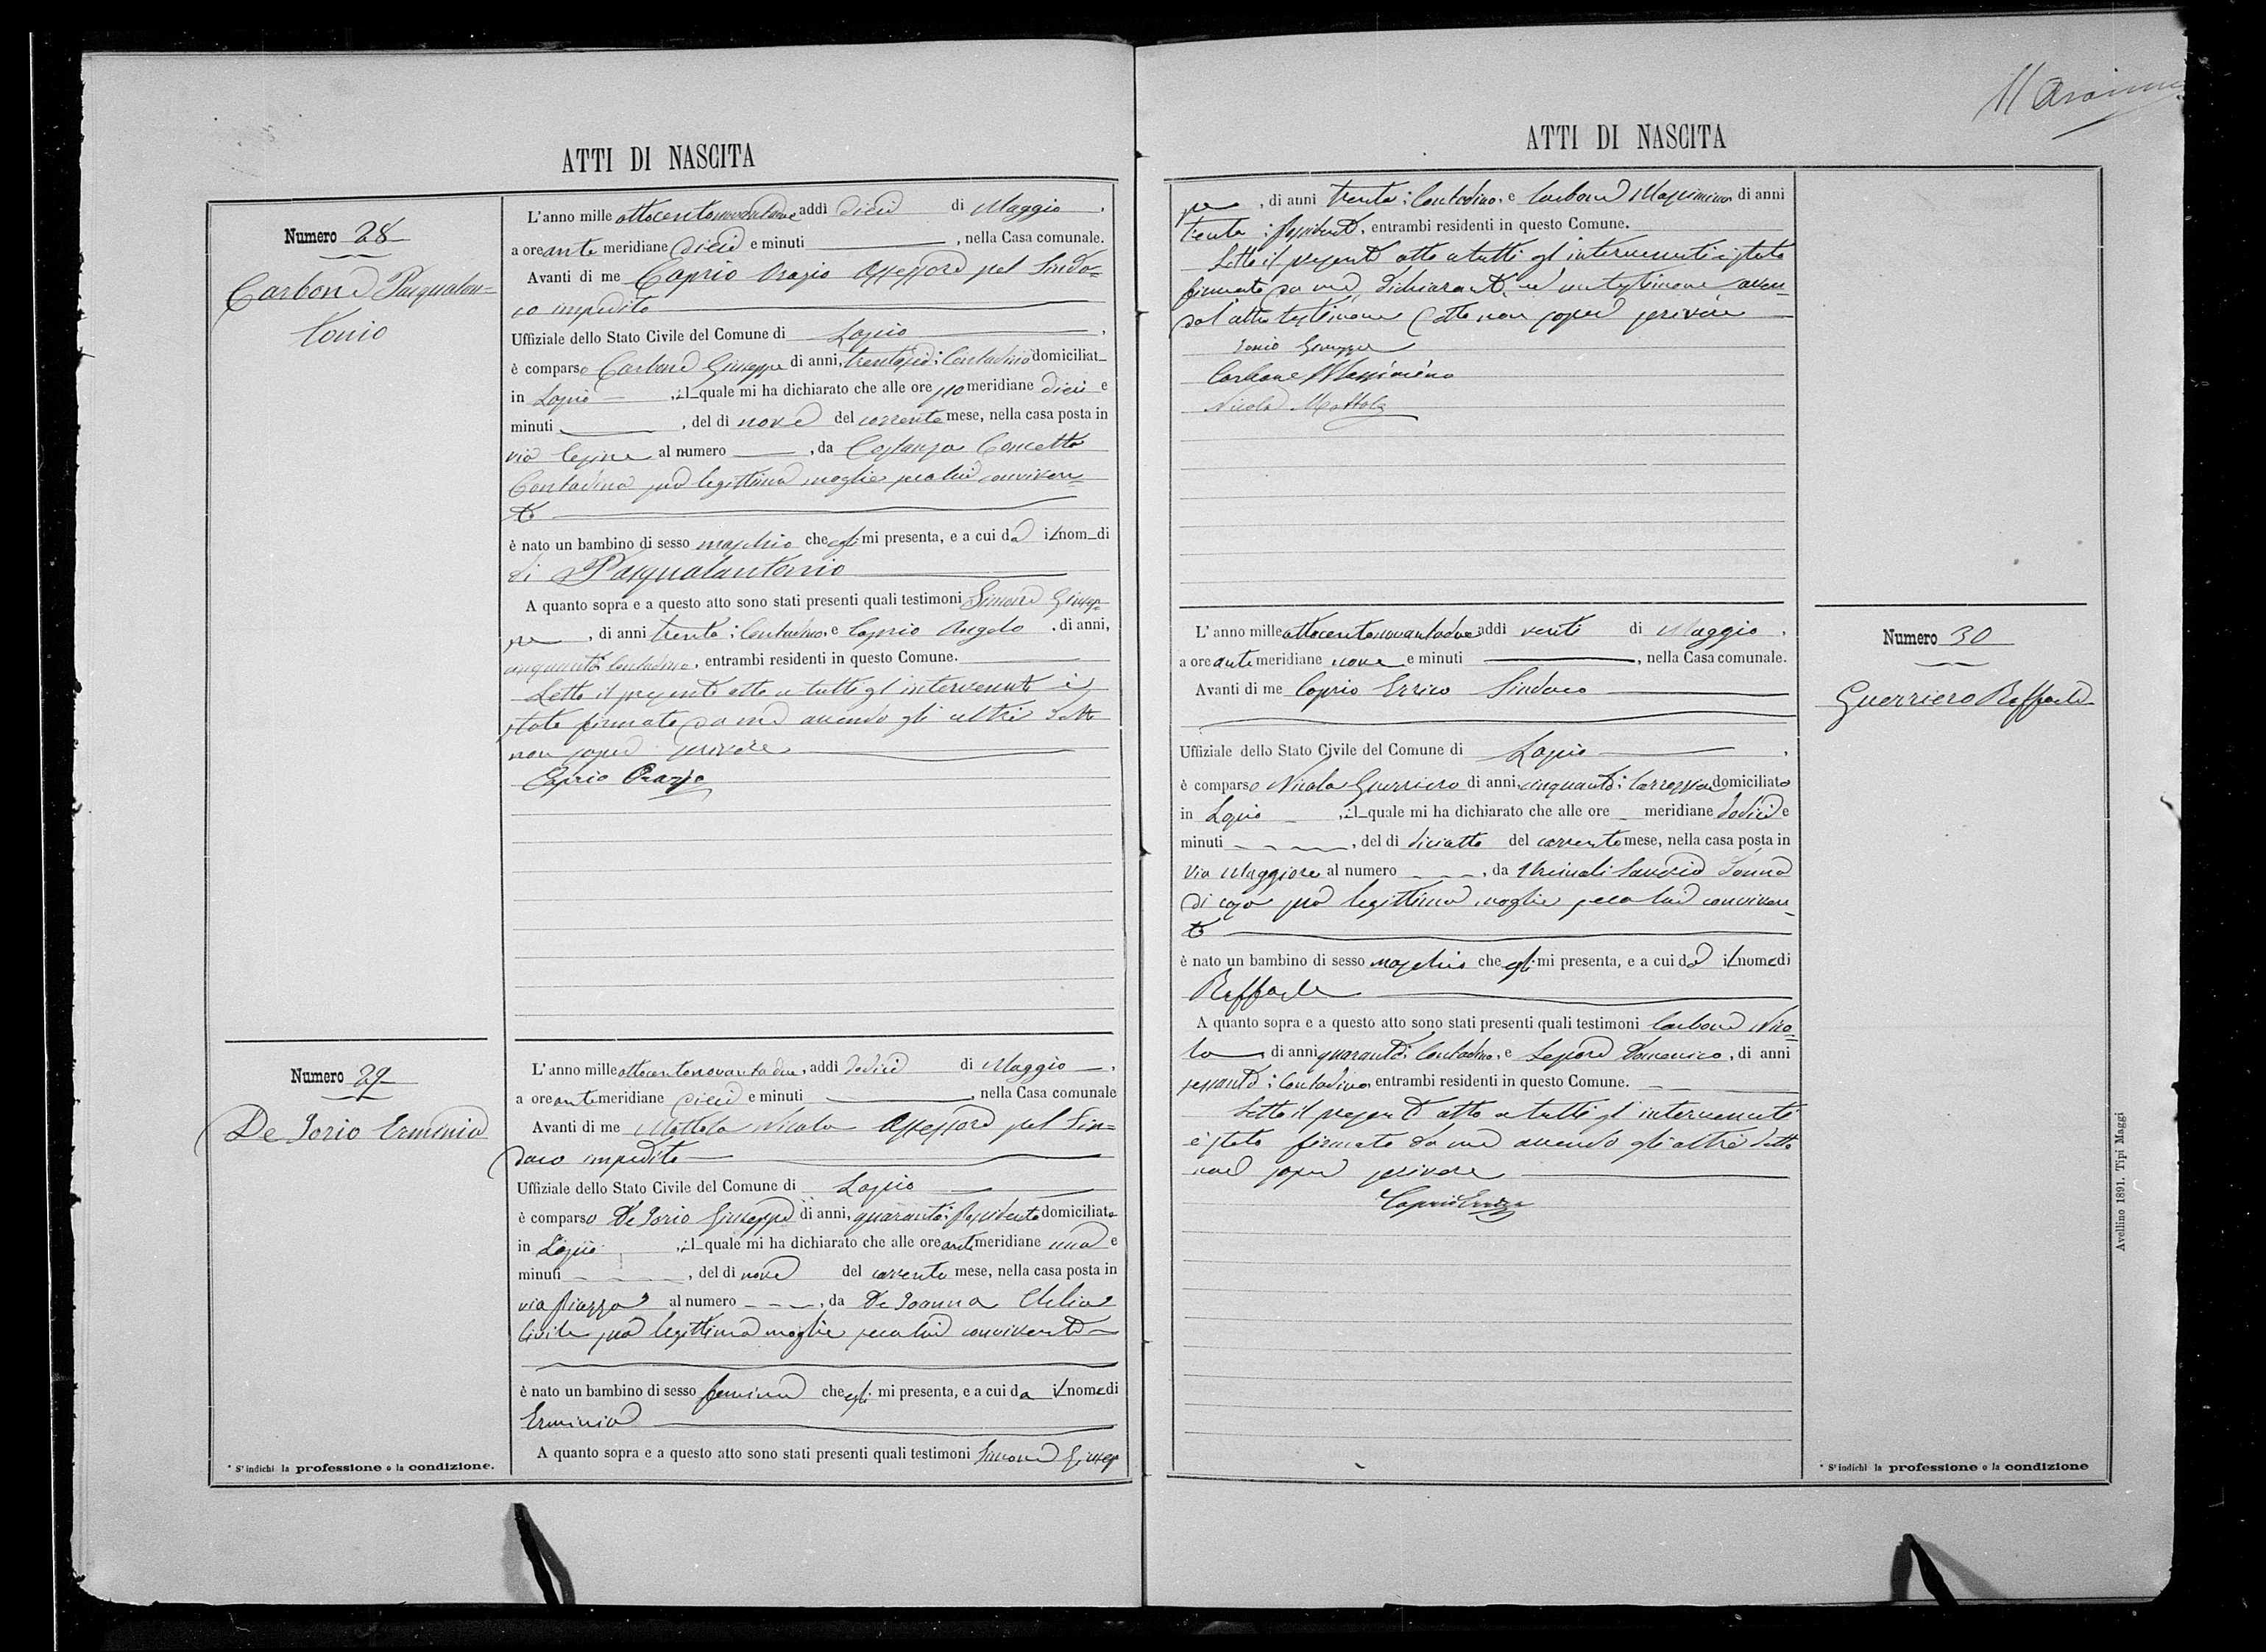 ATTI DI NASCITA
Numero 28
Carbone Pasqualan=
tonio
L'anno mille ottocentonovantadue addì dieci di Maggio,
a ore ante meridiane dieci e minuti , nella Casa comunale.
Avanti di me Caprio Orazio Assessore pel Sinda=
co impedito
Uffiziale dello Stato Civile del Comune di Lapio,
è comparso Carbone Giuseppe di anni, trentasei: Contadino domiciliat
in Lapio , il quale mi ha dichiarato che alle ore po meridiane dieci e
minuti , del dì nove del corrente mese, nella casa posta in
via al numero , da Costanza Concetta
Contadina sua legittima moglie seco lui conviven=
te
è nato un bambino di sesso maschio che egli mi presenta, e a cui dà il nom di
di Pasqualantonio
A quanto sopra e a questo atto sono stati presenti quali testimoni Simone Giusep=
pe , di anni trenta: Contadino, e Caprio Angelo , di anni,
cinquanta: Contadino, entrambi residenti in questo Comune.
Letto il presente atto a tutti gl'intervenuti è
stato firmato da me avendo gli altri detto
non sapere scrivere
Caprio Orazio
Numero 29
De Iorio Erminia
L'anno mille ottocentonovantadue, addì dodici di Maggio,
a ore antimeridiane dieci e minuti , nella Casa comunale
Avanti di me Mottola Nicola Assessore pel Sin=
daco impedito
Uffiziale dello Stato Civile del Comune di Lapio
è comparso De Iorio Giuseppe di anni, quaranta: Possidente domiciliato
in Lapio , il quale mi ha dichiarato che alle ore anti meridiane una e
minuti , del dì nove del corrente mese, nella casa posta in
via Piazza al numero , da De Ioanna Clelia
Civile sua legittima moglie seco lui convivente
è nato un bambino di sesso femina che egli mi presenta, e a cui da il nome di
Erminia
A quanto sopra e a questo atto sono stati presenti quali testimoni Simone Giusep
* S'indichi la professione o la condizione.
ATTI DI NASCITA
pe , di anni trenta: Contadino, e Carbone Massimino di anni
trenta: Possidente, entrambi residenti in questo Comune.
Letto il presente atto a tutti gl'intervenuti è stato
firmato da me, dichiarante, ed un testimone aven=
do l'altro testimone detto non sapere scrivere
Iorio Giuseppe
Carbone Massimino
Nicola Mottola
Numero 30
Guerriero Raffaele
L'anno mille ottocentonovantadue addì venti di Maggio,
a ore ante meridiane nove e minuti , nella Casa comunale.
Avanti di me Caprio Errico Sindaco
Uffiziale dello Stato Civile del Comune di Lapio,
è comparso Nicola Guerriero di anni, cinquanta: domiciliato
in Lapio , il quale mi ha dichiarato che alle ore meridiane dodici e
minuti , del dì diciotto del corrente mese, nella casa posta in
Via Maggiore al numero , da Donna
di casa sua legittima moglie seco lui conviven=
te
è nato un bambino di sesso maschio che egli mi presenta, e a cui dà il nome di
Raffaele
A quanto sopra e a questo atto sono stati presenti quali testimoni Carbone Nico=
la di anni quaranta: Contadino, e Lepore Domenico, di anni
sessanta: Contadino, entrambi residenti in questo Comune.
Letto il presente atto a tutti gl'intervenuti
è stato firmato da me avendo gli altri detto
non saper scrivere
Caprio Errico
* S'indichi la professione o la condizione
Avellino 1891. Tipi Maggi